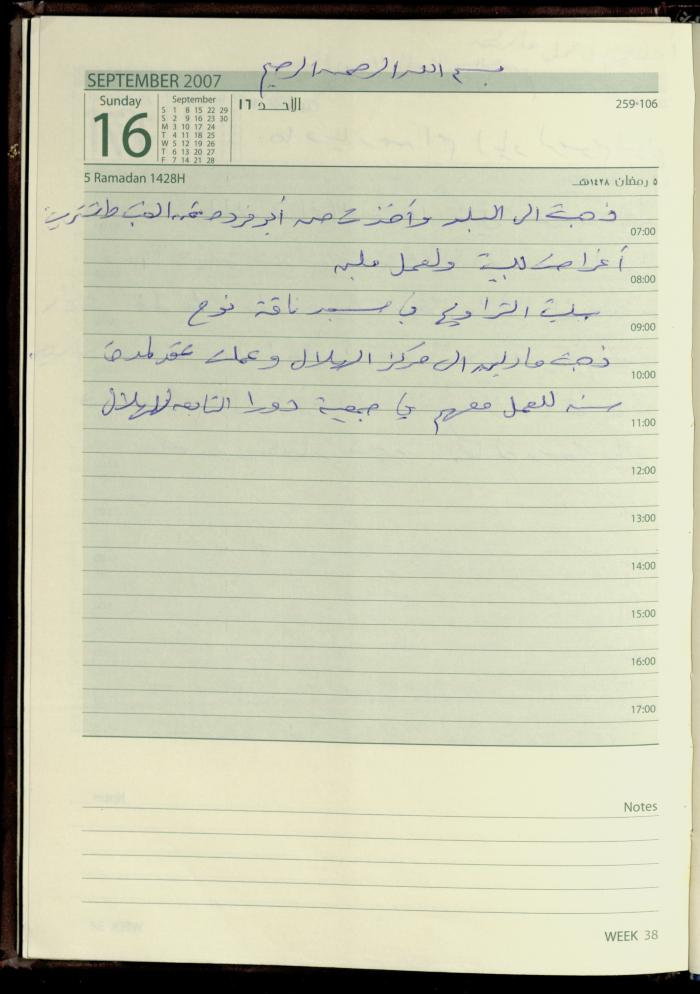 بسم الله الرحمن الرحيم
SEPTEMBER 2007
Sunday
16
September
S 1 8 15 22 29
S 2 9 16 23 30
M 3 10 17 24
T 4 11 18 25
W 5 12 19 26
T 6 13 20 27
F 7 14 21 28
الأحد ١٦
259-106
5 Ramadan 1428H
٥ رمضان ١٤٢٨هـ
ذهبت الى البلد وأخذت من أبو فرده ثمن العنب واشتريت
07:00
أغراض للبيت ولعمل ملبن
08:00
صليت التراويح في مسجد ناقة نوح
09:00
ذهبت مارلين الى مركز الهلال وعملت عقد لمدة
10:00
سنه للعمل معهم في جمعية دورا التابعه للهلال
11:00
12:00
13:00
14:00
15:00
16:00
17:00
Notes
WEEK 38